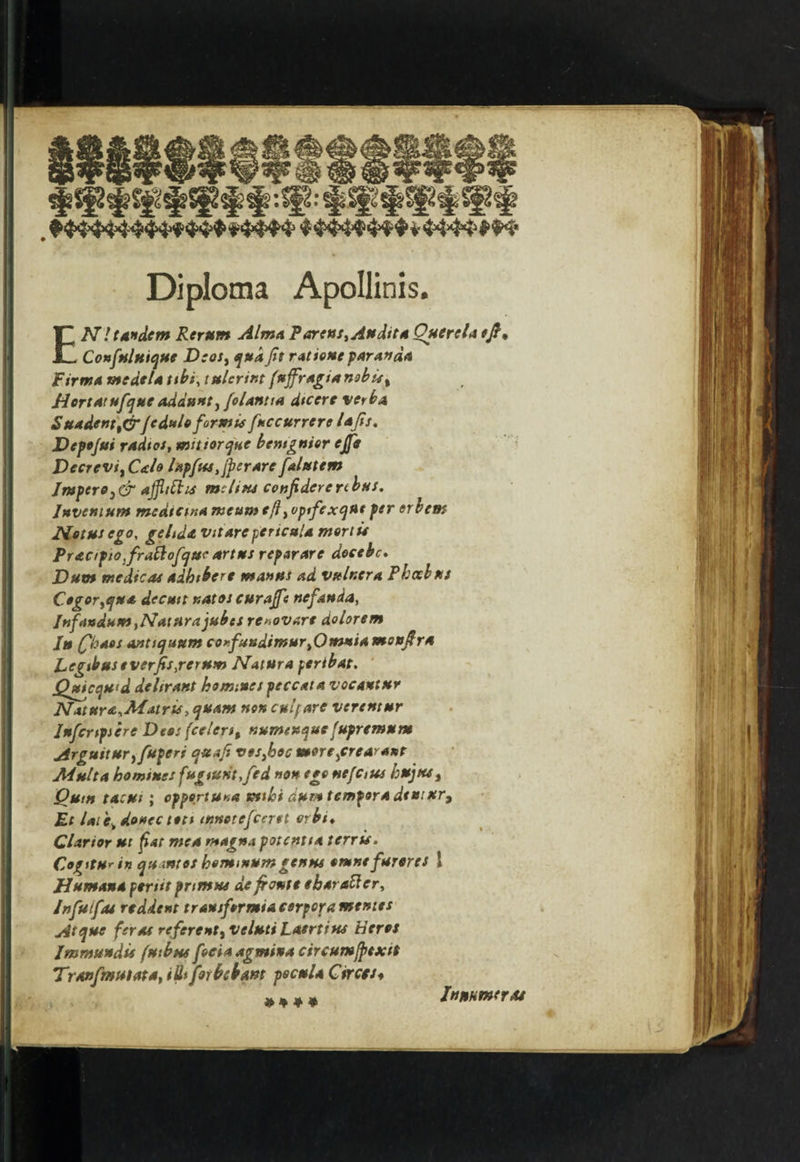 Diploma Apollinis.
EN! tandem Rerum Alma Parens, Audita Querela eſt,
Conſuluique Deos, quâ ſit ratione paranda
Firma medela tibi, tulerint ſuffragia nobis,
Hortatuſque addunt, ſolantia dicere verba
Suadent, & ſedulo formis ſuccurrere laſis.
Depoſui radios, mitiorque benignior eſſe
Decrevi, Cælo lapſus, ſperare ſalutem
Impero, & afflictis melius confidere rebus.
Inventum medicina meum eſt, opifexque per orbem
Notus ego, gelidæ vitare pericula mortis
Præcipio, fractoſque artus reparare docebo.
Dum medicas adhibere manus ad vulnera Phœbus
Cogor, quæ decuit natos curaſſe nefanda,
Infandum, Natura jubes renovare dolorem
In Chaos antiquum confundimur, Omnia monſtra
Legibus everſis, rerum Natura peribat.
Quicquid delirant homines peccata vocantur
Naturæ, Matris, quam non culpare verentur
Inſcripſere Deos ſceleri, numenque ſupremum
Arguitur, ſuperi quaſi vos, hoc more, crearant
Multa homines fugiunt, ſed non ego neſcius hujus,
Quin tacui; opportuna mihi dum tempora dentur,
Et latè, donec toti innoteſceret orbi.
Clarior ut fiat mea magna potentia terris.
Cogitur in quantos hominum genus omne furores!
Humana periit primus de fronte character,
Inſulſas reddent transformia corpora mentes
Atque feras referent, veluti Laertius Heros
Immundis ſuibus ſocia agmina circumſpexit
Tranſmutata, illi ſorbebant pocula Circes,
**** Innumeras